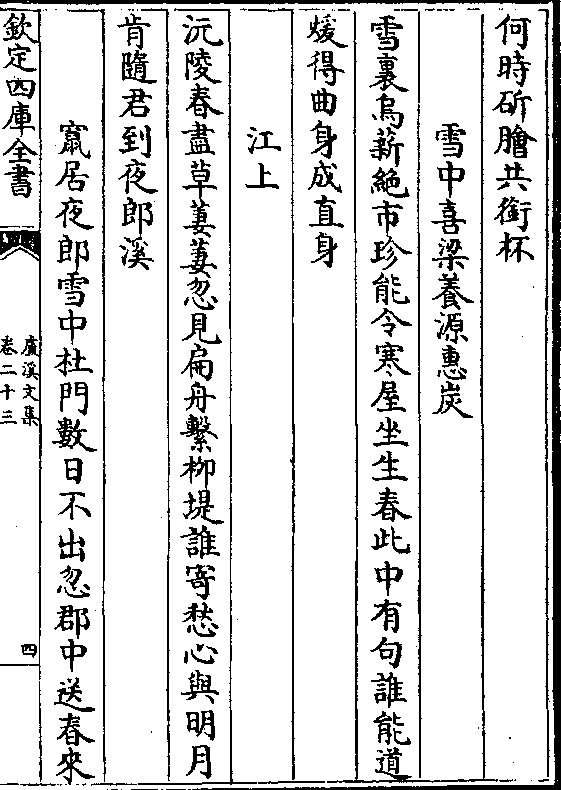 何時斫膾共銜杯
雪中喜梁養源惠炭
雪裏烏薪絶市珍能令寒屋坐生春此中有句誰能道
煖得曲身成直身
江上
沅陵春盡草萋萋忽見扁舟繫柳堤誰寄愁心與明月
肯隨君到夜郎溪
竄居夜郎雪中杜門數日不出忽郡中送春來
欽定四庫全書
盧溪文集
卷二十三
四